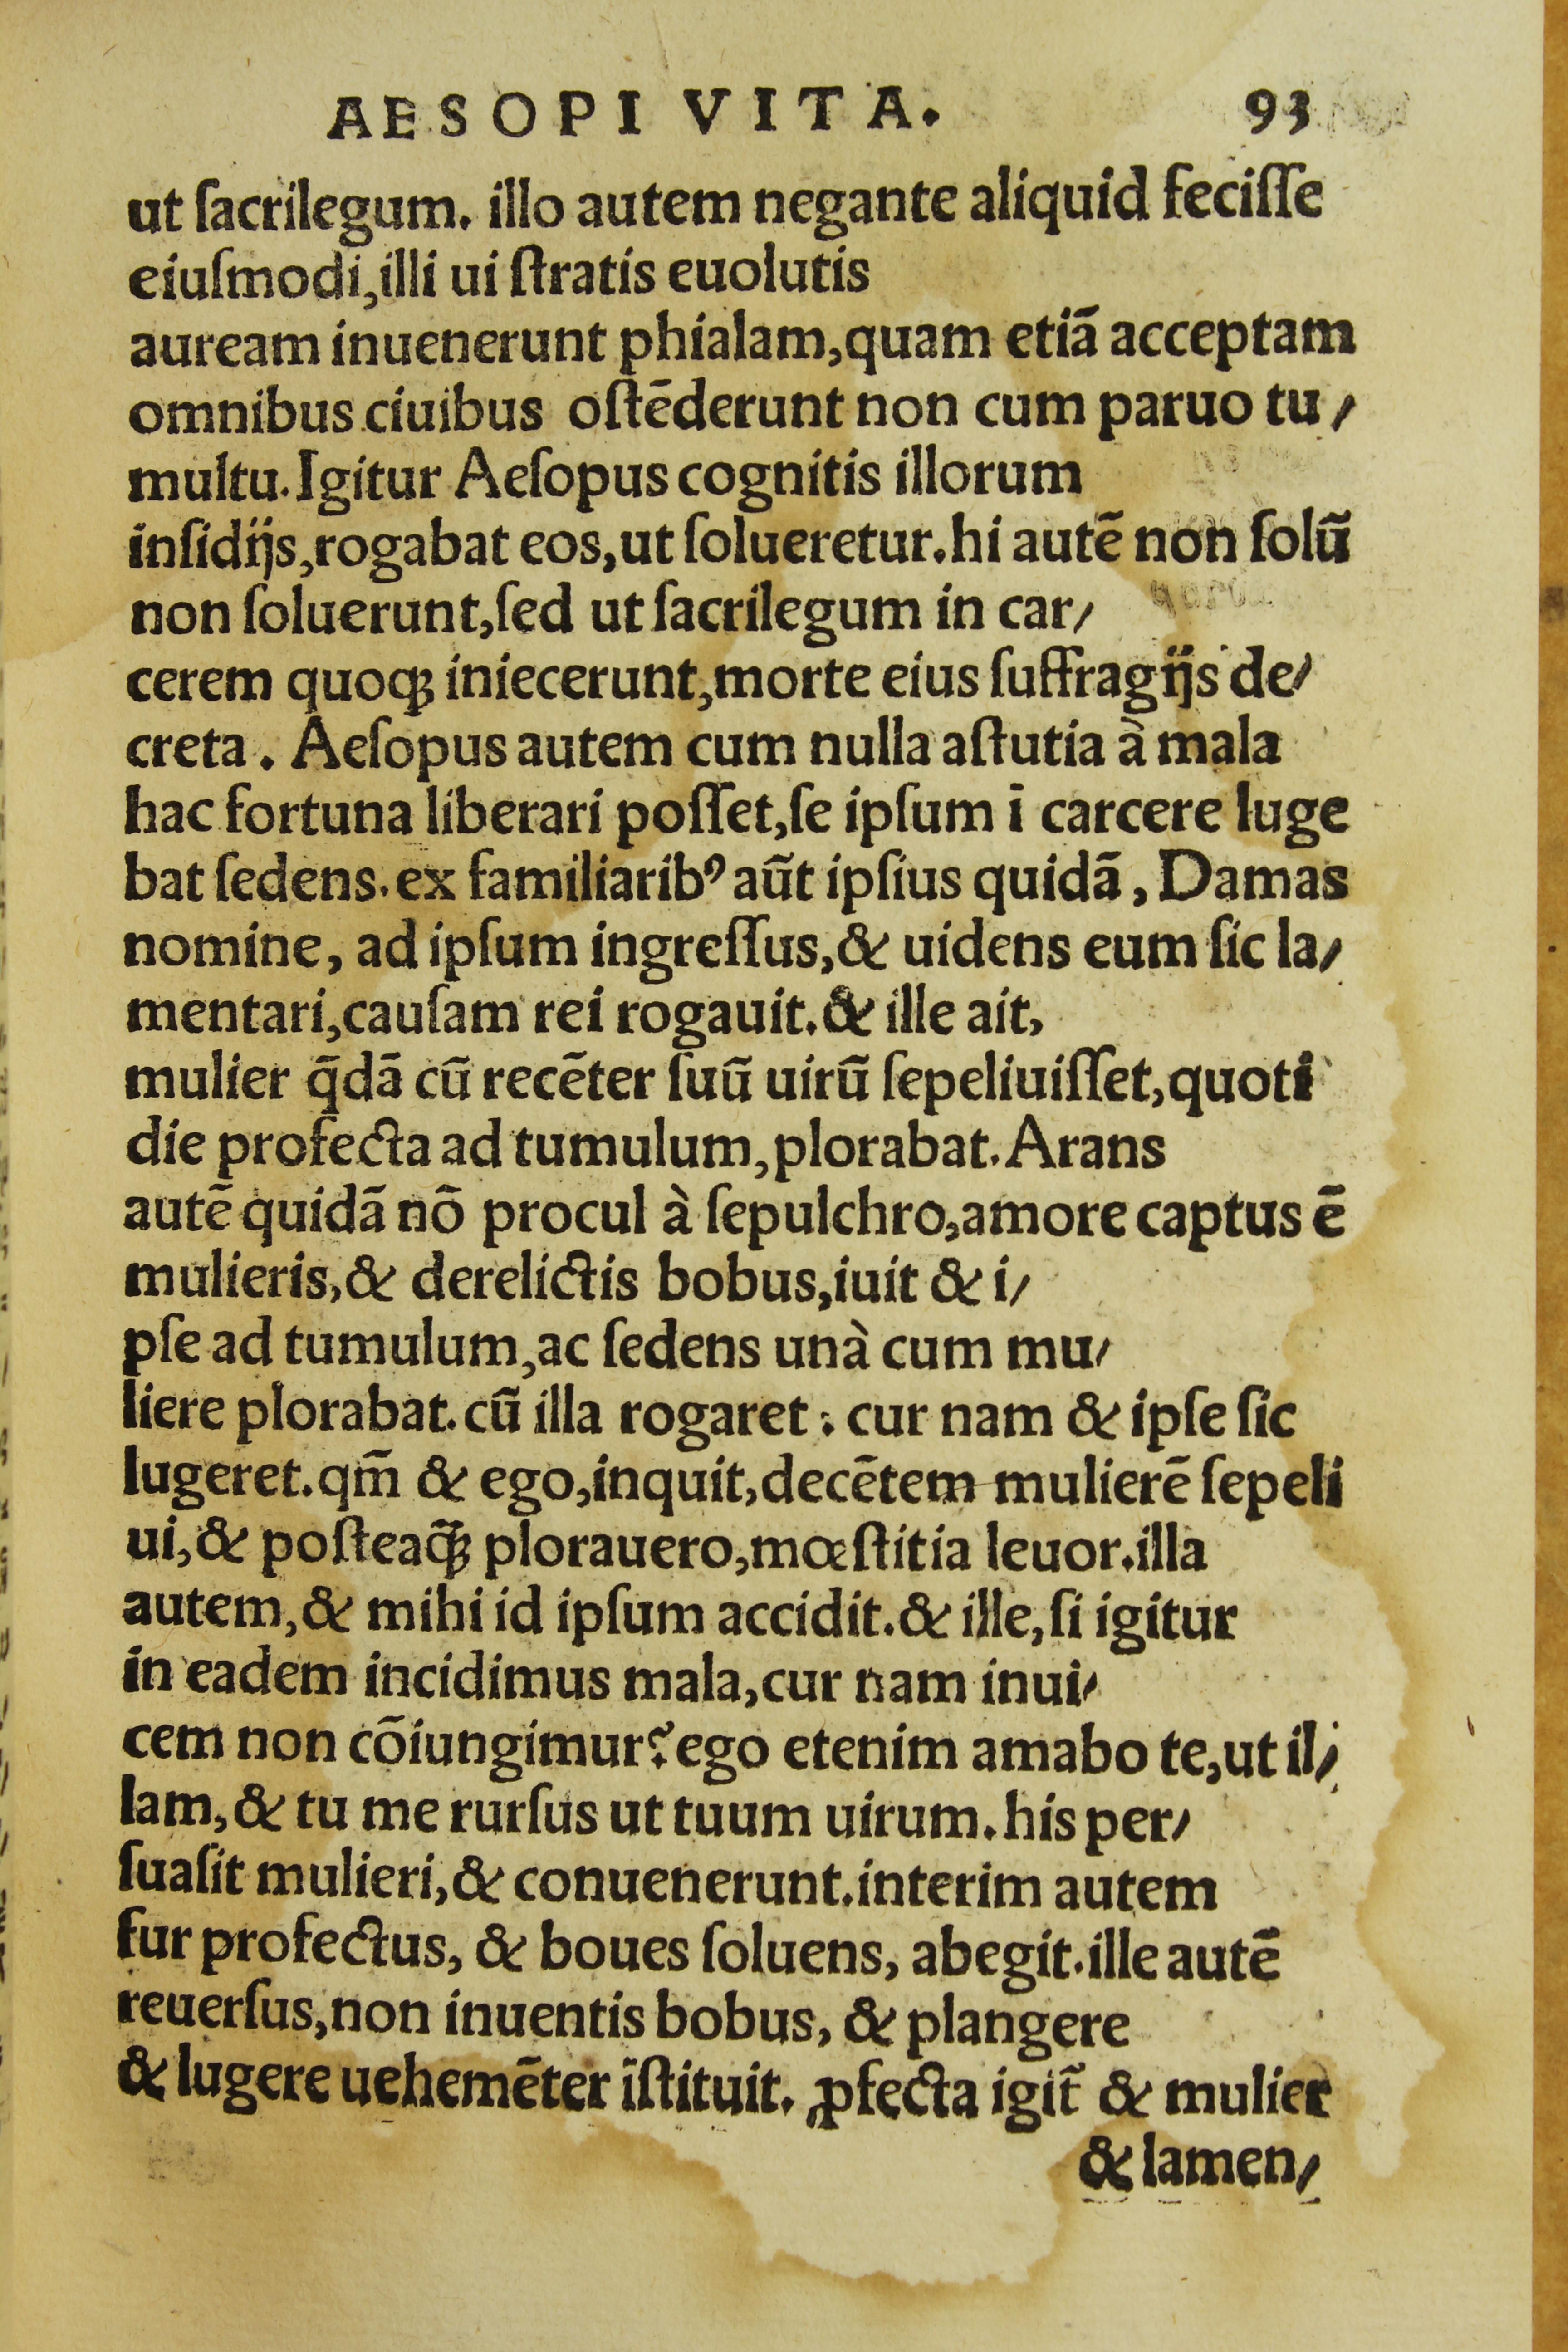 AESOPI VITA. 93
ut ſacrilegum. illo autem negante aliquid feciſſe
eiuſmodi,illi ui ſtratis euolutis
auream inuenerunt phialam,quam etiã acceptam
omnibus ciuibus oſtẽderunt non cum paruo tu/
multu.Igitur Aeſopus cognitis illorum
inſidijs,rogabat eos,ut ſolueretur.hi autẽ non ſolũ
non ſoluerunt,ſed ut ſacrilegum in car/
cerem quoqꝫ iniecerunt,morte eius ſuffragijs de/
creta. Aeſopus autem cum nulla aſtutia à mala
hac fortuna liberari poſſet,ſe ipſum ī carcere luge
bat ſedens.ex familiaribꝰ aũt ipſius quidã, Damas
nomine, ad ipſum ingreſſus,& uidens eum ſic la/
mentari,cauſam rei rogauit.& ille ait,
mulier q̄dã cũ recẽter ſuũ uirũ ſepeliuiſſet,quoti
die profecta ad tumulum,plorabat.Arans
autẽ quidã nõ procul à ſepulchro,amore captus ẽ
mulieris,& derelictis bobus,iuit & i/
pſe ad tumulum,ac ſedens unà cum mu/
liere plorabat.cũ illa rogaret: cur nam & ipſe ſic
lugeret.qm̃ & ego,inquit,decẽtem mulierẽ ſepeli
ui,& poſteaq̃ꝫ plorauero,mœſtitia leuor.illa
autem,& mihi id ipſum accidit.& ille,ſi igitur
in eadem incidimus mala,cur nam inui/
cem non cõiungimur?ego etenim amabo te,ut il/
lam,& tu me rurſus ut tuum uirum.his per/
ſuaſit mulieri,& conuenerunt.interim autem
fur profectus, & boues ſoluens, abegit.ille autẽ
reuerſus,non inuentis bobus, & plangere
& lugere uehemẽter ĩſtituit. ꝓfecta igit̃ & mulier
& lamen/